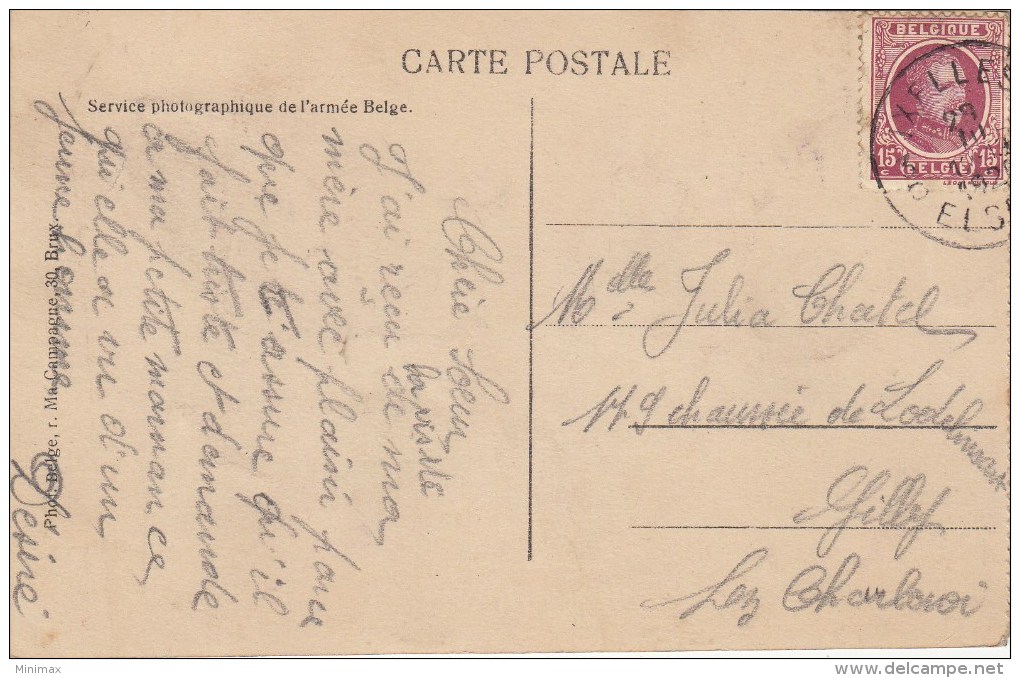 CARTE POSTALE
Service photographique de l'armée Belge.
Phot. Belge, r. Ma Campagne, 30, Brux.
BELGIQUE
15 15
BELGIË
XELLES
23
ELS
Chère Soeur
J'ai reçu de ma
la visite
mère avec plaisir parce
que je t'assure qu'il
fait triste et demande
à ma petite maman ce
qu'elle a vu d'un
jeune homme
Désiré
Melle Julia Chatel
119 chaussée de Lodelinsart
Gilly
Lez Charleroi
Minimax
www.delcampe.net